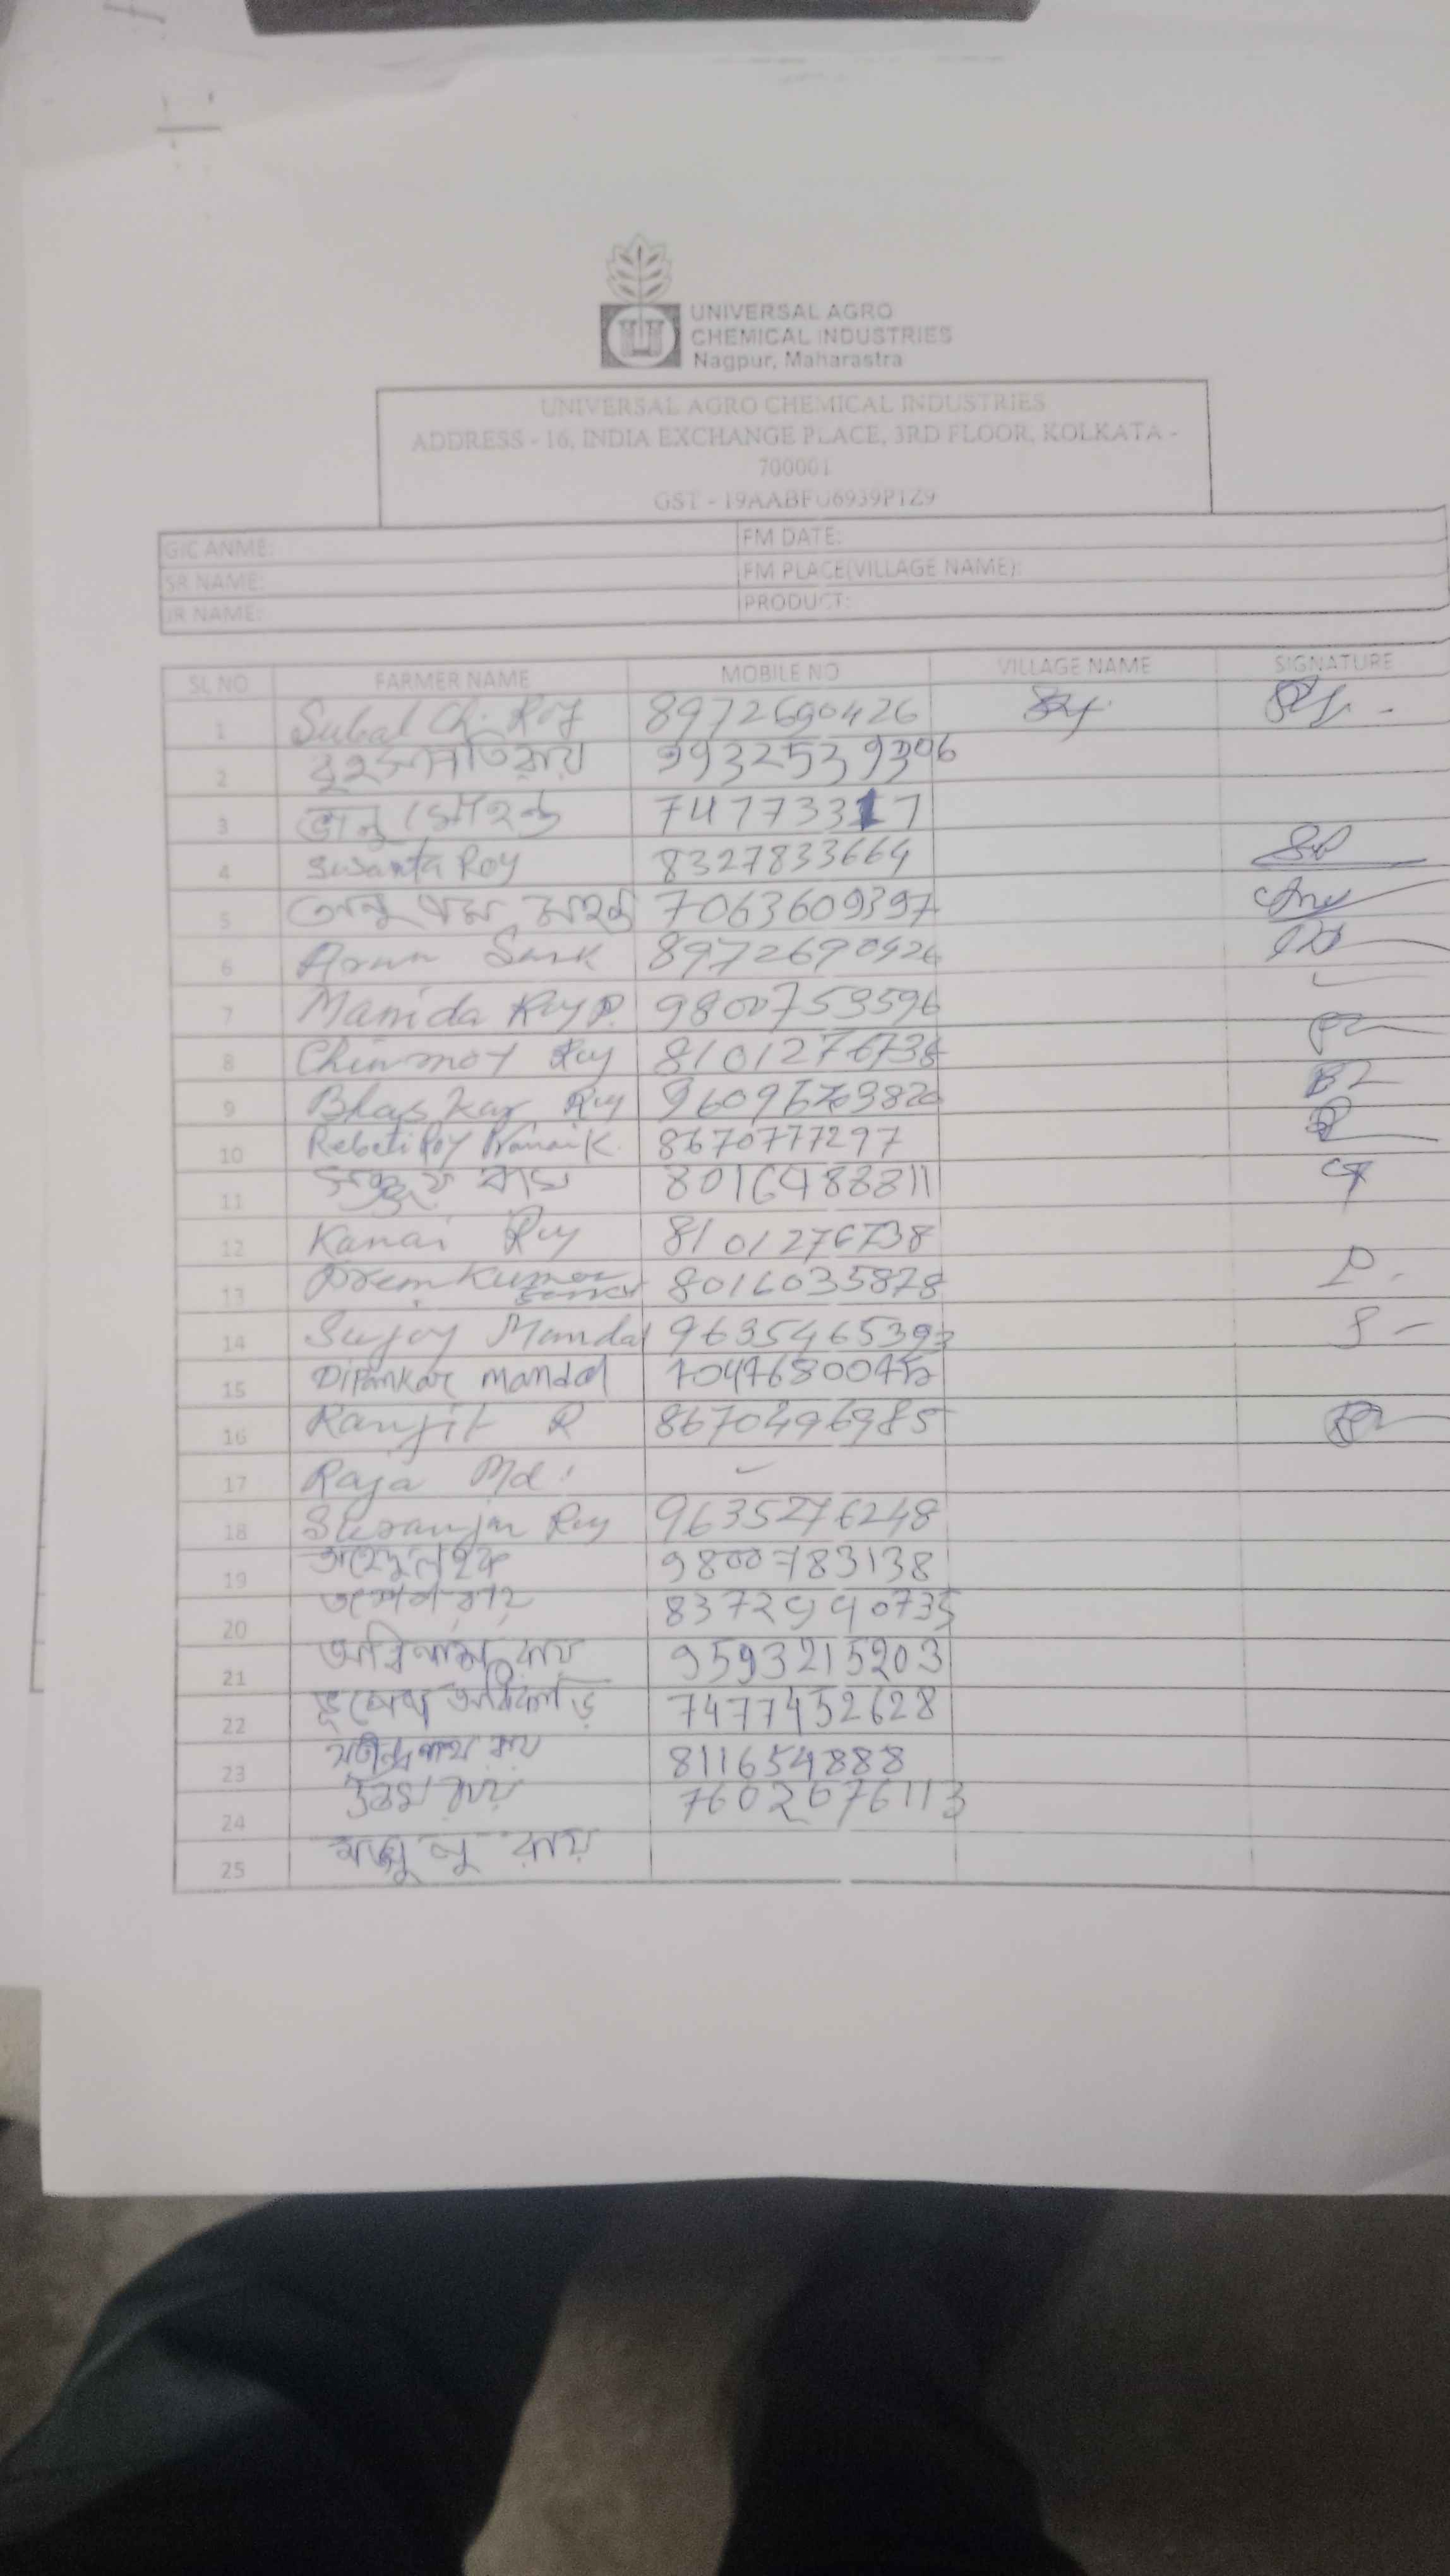 UNIVERSAL AGRO
CHEMICAL INDUSTRIES
Nagpur, Maharastra
UNIVERSAL AGRO CHEMICAL INDUSTRIES
ADDRESS - 16, INDIA EXCHANGE PLACE, 3RD FLOOR, KOLKATA -
700001
GST - 19AABFU6939P1Z9
GIC ANME: FM DATE:
SR NAME: FM PLACE(VILLAGE NAME):
JR NAME: PRODUCT:
SL NO FARMER NAME MOBILE NO VILLAGE NAME SIGNATURE
1 Subal Ch. Roy 8972690426
2 বৃহস্পতি রায়
3 ভানু মোহন্ত
4 Susanta Roy 8327833664
5 অনুপম মহন্ত 7063609397
6 Arun Sark 8972690426
7 Manida Roy P. 9800753596
8 Chinmoy Roy 8101276738
9 Bhaskar Roy
10 Rebati Roy Pramanik. 8670777297
11 8016488811
12 Kanai Roy 8101276738
13 Prem Kumar 8016035878 P.
14 Sujoy Mandal 9635465393 S -
15 Dipankar mandal
16 Ranjit R 8670496985
17 Raja Md.
18 Suranjan Roy 9635276248
19 9800783138
20 রায়
21 অবিনাশ রায় 9593215203
22 ভূপেন অধিকারি 7477452628
23 যতীন্দ্রনাথ রায় 811654888
24 উত্তম রায় 7602676113
25 রায়